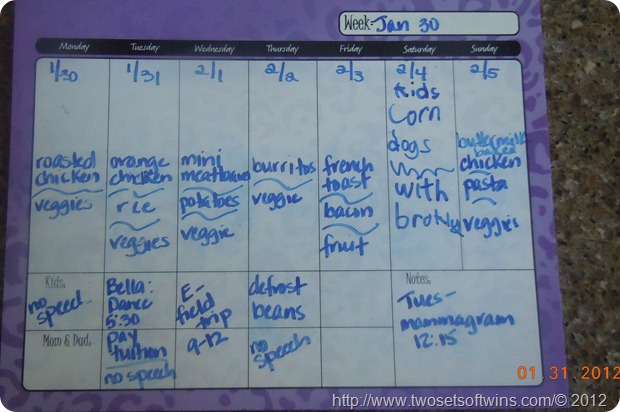 Week- Jan 30
Monday Tuesday Wednesday Thursday Friday Saturday Sunday
1/30
roasted
chicken
veggies
1/31
orange
chicken
rice
veggies
2/1
mini
meatloaves
potatoes
veggie
2/2
burritos
veggie
2/3
french
toast
bacon
fruit
2/4
Kids
corn
dogs
with
2/5
buttermilk
baked
chicken
pasta
veggies
Kids:
no
speech
Bella:
Dance
5:30
E-
field
trip
9-12
defrost
beans
Mom & Dad:
pay
tuition
no speech
no
speech
Notes:
Tues-
mammagram
12:15
01 31 2012
http://www.twosetsoftwins.com/© 2012